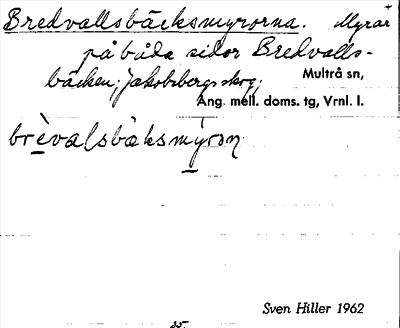 Bredvallsbäcksmyrorna. Myrar
på båda sidor Bredvalls-
bäcken; Jakobsbergs skog; Multrå sn,
Ång. mell. doms. tg, Vrnl. l.
brèvalsbäksmyron
Sven Hiller 1962